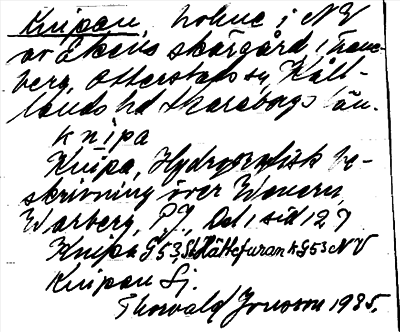 Knipan, holme i NV
av Ekens skärgård i Trane-
berg, Otterstads sn, Kåll-
lands hd Skaraborgs län.
knipa
Knipa, Hydrografisk be-
skrivning över Wenern,
Warberg, P.J., Del 1 sid 127
Knipa G53, St. Hättefuran h G53 NV
Knipan Sj.
Thorvald Jonsson 1935.